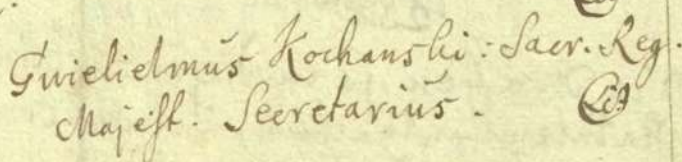 Gwielielmus Kochanski: Sacr. Reg.
Majest. Secretarius.